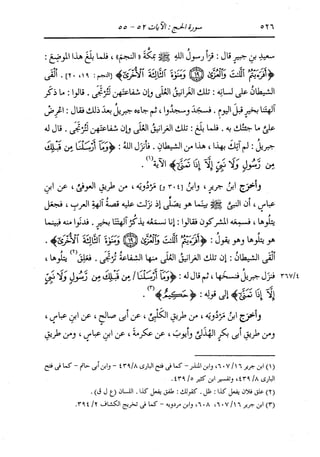 ٥٢٦ سورة الحج : الآيات ٥٢ - ٥٥
سعيد بن جبير قال : قرأ رسول الله ﷺ بمكة « النجم » ، فلما بلغ هذا الموضع :
﴿أَفَرَءَيْتُمُ ٱللَّٰتَ وَٱلْعُزَّىٰ ﴿١٩﴾ وَمَنَوٰةَ ٱلثَّالِثَةَ ٱلْأُخْرَىٰٓ﴾ [النجم : ١٩، ٢٠] . ألقى
الشيطان على لسانه : تلك الغرانيق العلى وإن شفاعتهن لترتجى . قالوا : ما ذكر
آلهتنا بخير قبل اليوم . فسجد وسجدوا ، ثم جاءه جبريل بعد ذلك فقال : اعرض
على ما جئتك به . فلما بلغ : تلك الغرانيق العلى وإن شفاعتهن لترتجى . قال له
جبريل : لم آتك بهذا ، هذا من الشيطان . فأنزل الله : ﴿وَمَآ أَرْسَلْنَا مِن قَبْلِكَ
مِن رَّسُولٍ وَلَا نَبِىٍّ إِلَّآ إِذَا تَمَنَّىٰٓ﴾ الآية (١) .
وأخرج ابن جرير ، وابن [٣٠٤ و] مردويه ، من طريق العوفى ، عن ابن
عباس ، أن النبى ﷺ بينما هو يصلى إذ نزلت عليه قصة آلهة العرب ، فجعل
يتلوها ، فسمعه المشركون فقالوا : إنا نسمعه يذكر آلهتنا بخير . فدنوا منه فبينما
هو يتلوها وهو يقول : ﴿أَفَرَءَيْتُمُ ٱللَّٰتَ وَٱلْعُزَّىٰ ﴿١٩﴾ وَمَنَوٰةَ ٱلثَّالِثَةَ ٱلْأُخْرَىٰٓ﴾ .
ألقى الشيطان : إن تلك الغرانيق العلى منها الشفاعة ترتجى . فعلق (٢) يتلوها ،
٣٦٧/٤ فنزل جبريل فنسخها ، ثم قال له : ﴿وَمَآ أَرْسَلْنَا / مِن قَبْلِكَ مِن رَّسُولٍ وَلَا نَبِىٍّ
إِلَّآ إِذَا تَمَنَّىٰٓ﴾ إلى قوله : ﴿حَكِيمٌ﴾ (٣) .
وأخرج ابن مردويه ، من طريق الكلبى ، عن أبى صالح ، عن ابن عباس ،
ومن طريق أبى بكر الهذلى وأيوب ، عن عكرمة ، عن ابن عباس ، ومن طريق
(١) ابن جرير ١٦/ ٦٠٧، وابن المنذر - كما فى فتح البارى ٨/ ٤٣٩ - وابن أبى حاتم - كما فى فتح
البارى ٨/ ٤٣٩، وتفسير ابن كثير ٥/ ٤٣٩.
(٢) علق فلان يفعل كذا : ظل . كقولك : طفق يفعل كذا . اللسان (ع ل ق).
(٣) ابن جرير ١٦/ ٦٠٧، ٦٠٨، وابن مردويه - كما فى تخريج الكشاف ٢/ ٣٩٤.